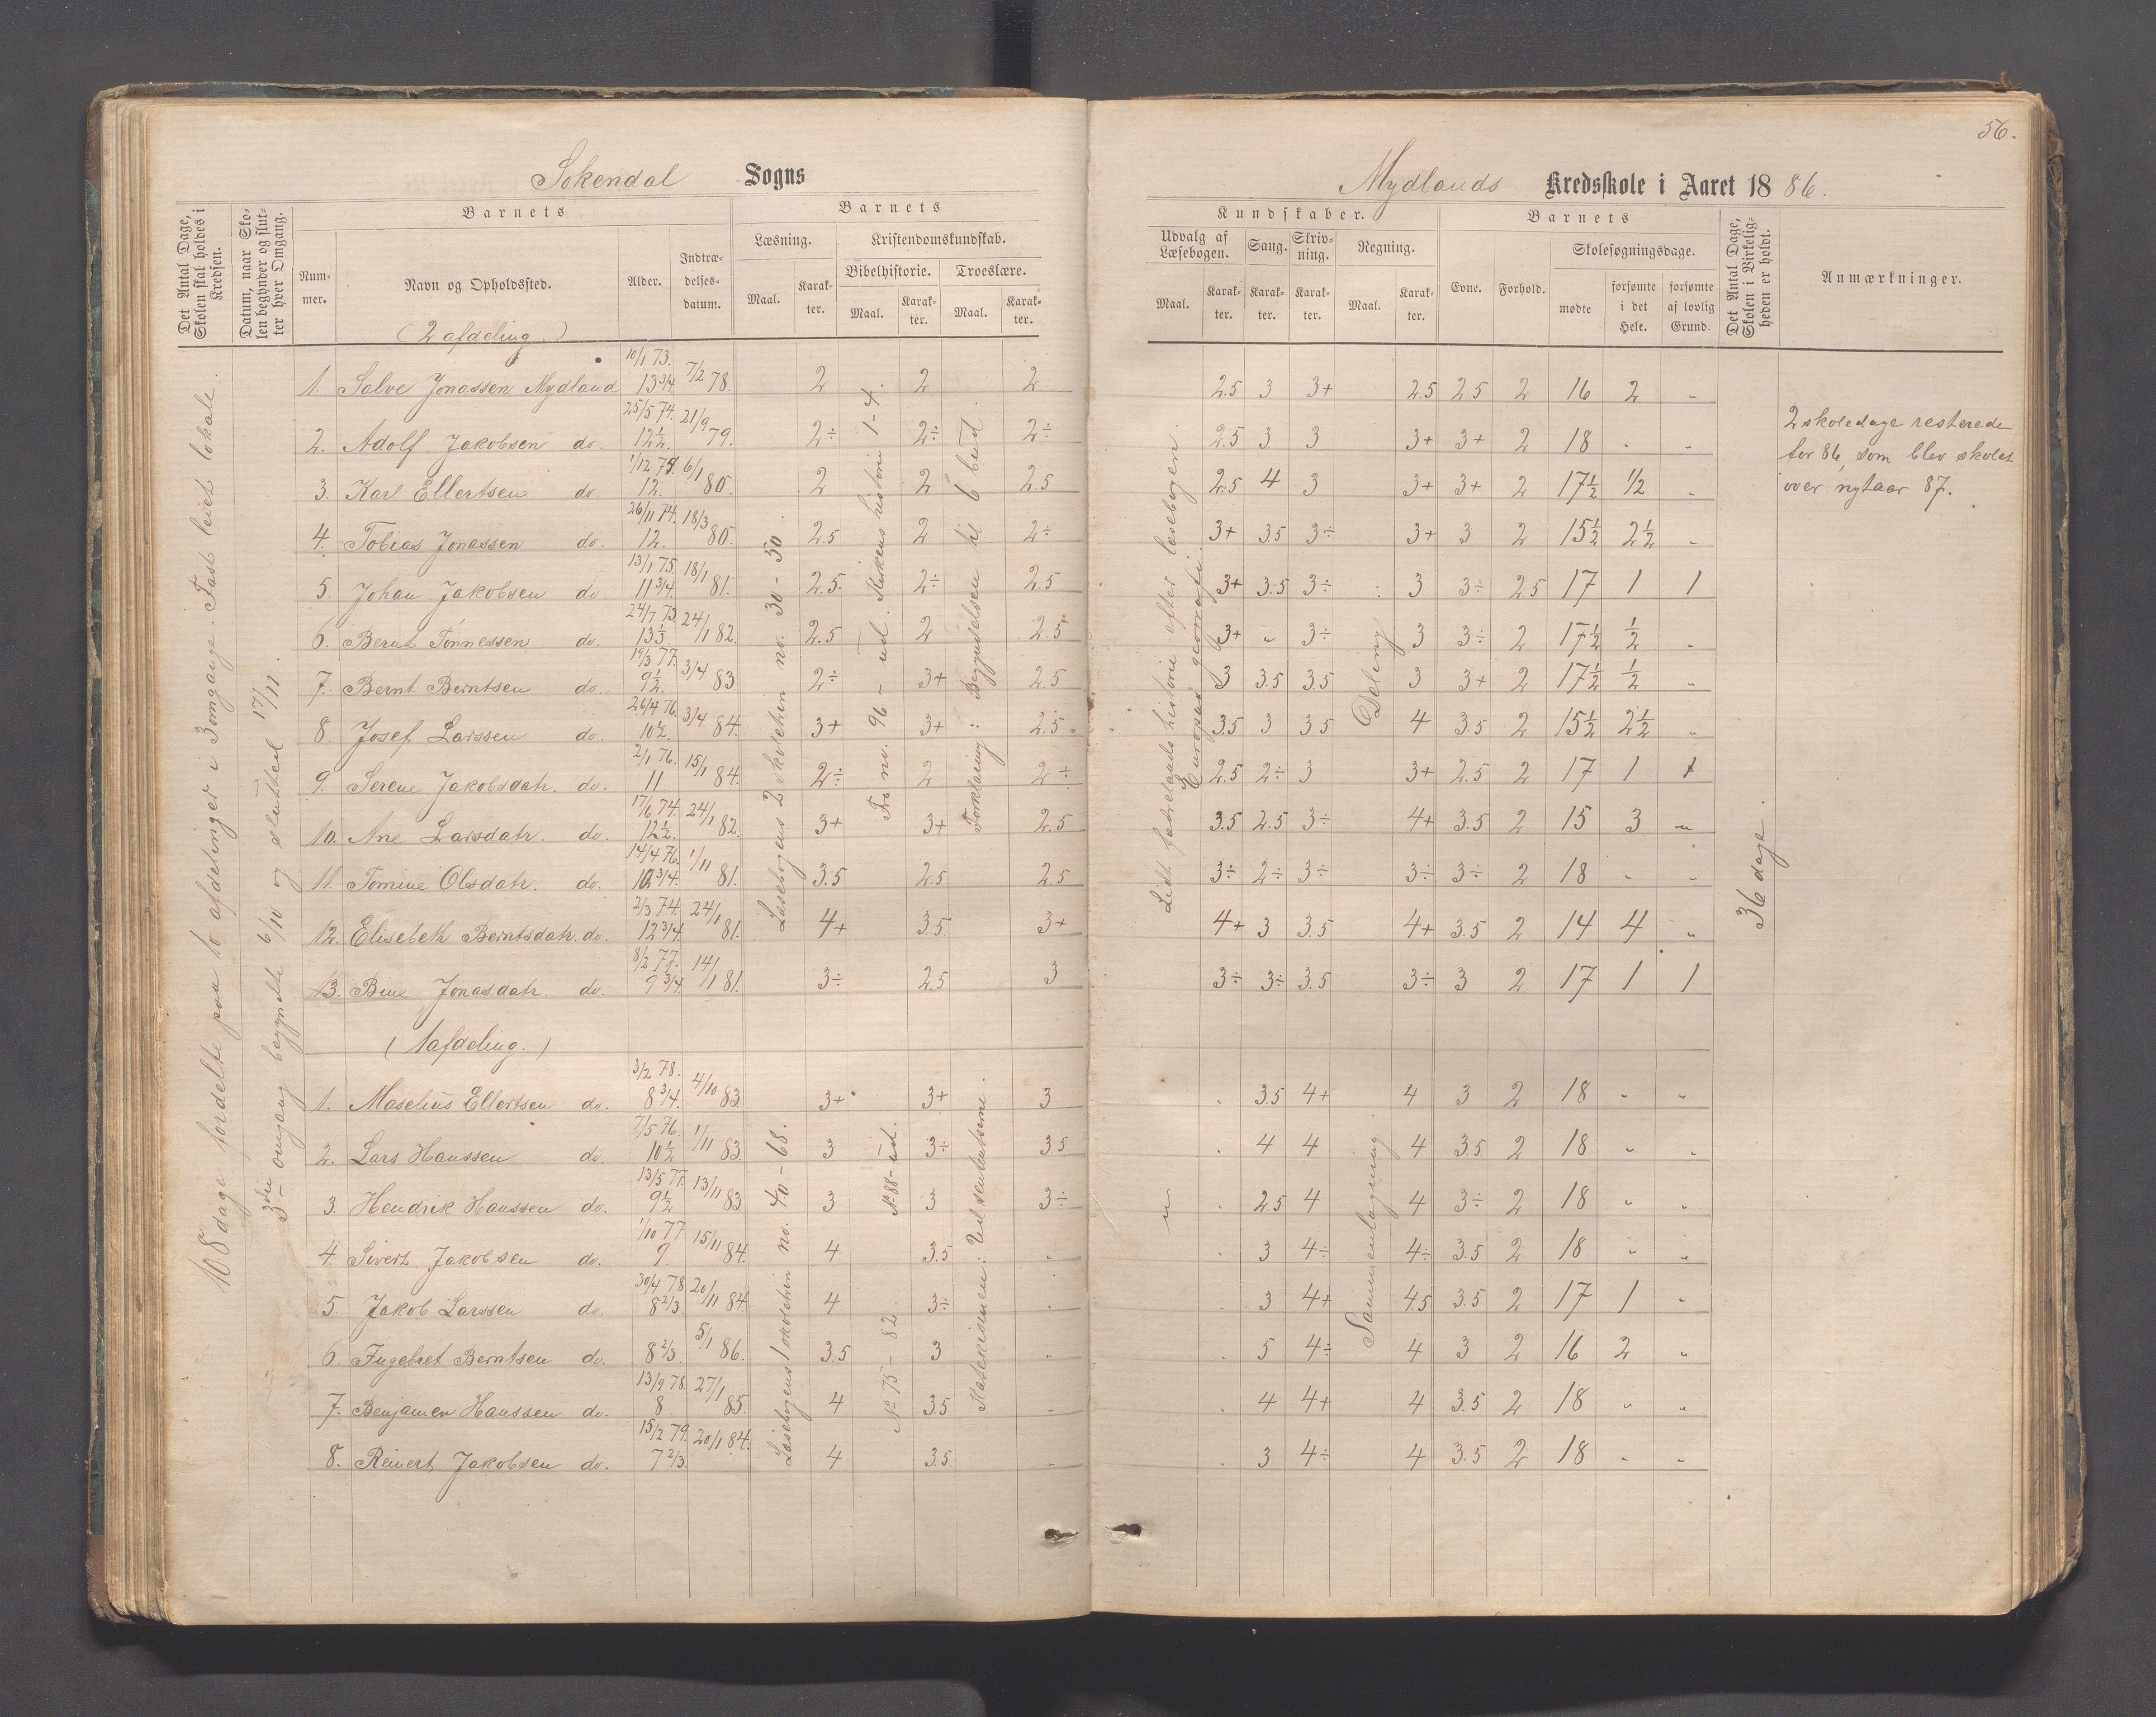 56.
Sokendal Sogns
Mydlands Kredsskole i Aaret 1886.
Det Antal Dage, Skolen skal holdes i Kredsen.
Datum, naar Skolen begynder og slutter hver Omgang.
Barnets
Nummer.
Navn og Opholdssted.
Alder.
Indtrædelsesdatum.
Barnets
Læsning.
Kristendomskundskab.
Bibelhistorie.
Troeslære.
Maal.
Karakter.
Maal.
Karakter.
Maal.
Karakter.
Kundskaber.
Udvalg af Læsebogen.
Sang.
Skrivning.
Regning.
Maal.
Karakter.
Karakter.
Karakter.
Maal.
Karakter.
Barnets
Evne.
Forhold.
Skolesøgningsdage.
mødte
forsømte i det Hele.
forsømte af lovlig Grund.
Det Antal Dage, Skolen i Virkeligheden er holdt.
Anmærkninger.
108 dage fordelte paa to afdelinger i 3 omgange. Fast leiet lokale.
3die omgang begyndte 6/10 og sluttet 17/11.
(2 afdeling.)
1. Salve Jonassen Mydland 10/1 73. 13 3/4. 7/2 78. 2 2 2 2.5 3 3+ 2.5 2.5 2 16 2 "
2. Adolf Jakobsen do. 25/5 74. 12 1/2. 21/9 79. 2÷ 2÷ 2÷ 2.5 3 3 3+ 3+ 2 18 " "
3. Karl Ellertsen do. 1/12 74. 12. 6/1 80. 2 2 2.5 2.5 4 3 3+ 3+ 2 17 1/2 1/2 "
4. Tobias Jonassen do. 26/11 74. 12. 18/3 80. 2.5 2 2÷ 3+ 3.5 3÷ 3+ 3 2 15 1/2 2 1/2 "
5. Johan Jakobsen do. 13/1 75. 11 3/4. 18/1 81. 2.5. 2÷ 2.5 3+ 3.5 3÷ 3 3÷ 2.5 17 1 1
6. Bernt Tønnessen do. 24/7 73. 13 1/3. 24/1 82. 2.5 2 2.5 3+ " 3÷ 3 3÷ 2 17 1/2 1/2 "
7. Bernt Berntsen do. 19/3 77. 9 1/2. 3/4 83 2÷ 3+ 2.5 3 3.5 3.5 3 3+ 2 17 1/2 1/2 "
8. Josef Larssen do. 26/4 76. 10 1/2. 3/4 84. 3+ 3+ 2.5 3.5 3 3.5 4 3.5 2 15 1/2 2 1/2 "
9. Serene Jakobsdatr. do. 2/1 76. 11 15/1 84. 2÷ 2 2÷ 2.5 2÷ 3 3+ 2.5 2 17 1 1
10. Ane Larsdatr. do. 17/6 74. 12 1/2. 24/1 82. 3+ 3+ 2.5 3.5 2.5 3÷ 4+ 3.5 2 15 3 "
11. Tomine Olsdatr. do. 14/4 76. 10 3/4. 1/11 81. 3.5 2.5 2.5 3÷ 2÷ 3÷ 3÷ 3÷ 2 18 " "
12. Elisebeth Berntsdatr. do. 2/3 74. 12 3/4. 24/1 81. 4+ 3.5 3+ 4+ 3 3.5 4+ 3.5 2 14 4 "
13. Bine Jonasdatr. do. 8/2 77. 9 3/4. 14/1 81. 3÷ 2.5 3 3÷ 3÷ 3.5 3÷ 3 2 17 1 1
Læsebogens 2 skoletrin no. 30-50.
Fra no. 96 - ud. Kirkens historie 1-4.
Forklaring: Begyndelsen til 6 bud.
Lidt fædrelands historie efter læsebogen.
Europas geografi.
Deling
36 dage.
2 skoledage resterede
for 86, som blev skolet
over nytaar 87.
(1 afdeling.)
1. Maselius Ellertsen do. 3/2 78. 8 3/4. 4/10 83 3+ 3+ 3 " 3.5 4+ 4 3 2 18 " "
2. Lars Hanssen do. 7/5 76. 10 1/2 1/11 83 3 3÷ 3.5 " 4 4 4 3.5 2 18 " "
3. Hendrik Hanssen do. 13/5 77. 9 1/2 13/11 83 3 3 3÷ " 2.5 4 4 3÷ 2 18 " "
4. Sivert Jakobsen do. 1/10 77 9. 15/11 84. 4 3.5 " " 3 4÷ 4÷ 3.5 2 18 " "
5. Jakob Larssen do. 30/4 78 8 2/3. 20/11 84. 4 3÷ " " 3 4+ 4.5 3.5 2 17 1 "
6. Ingebret Berntsen do. 8 2/3. 5/1 86. 3.5 3 " " 5 4÷ 4 3 2 16 2 "
7. Benjamen Hanssen do. 13/9 78. 8. 27/1 85. 4 3.5 " " 4 4+ 4 3.5 2 18 " "
8. Reinert Jakobsen do. 15/2 79. 7 2/3. 20/1 84. 4 3.5 " " 3 4÷ 4 3.5 2 18 " "
Læsebogens 1 skoletrin no. 40-68.
No 75-82
No 88-ud.
Katekismen: Udsenlutserne.
"
Sammenlægning